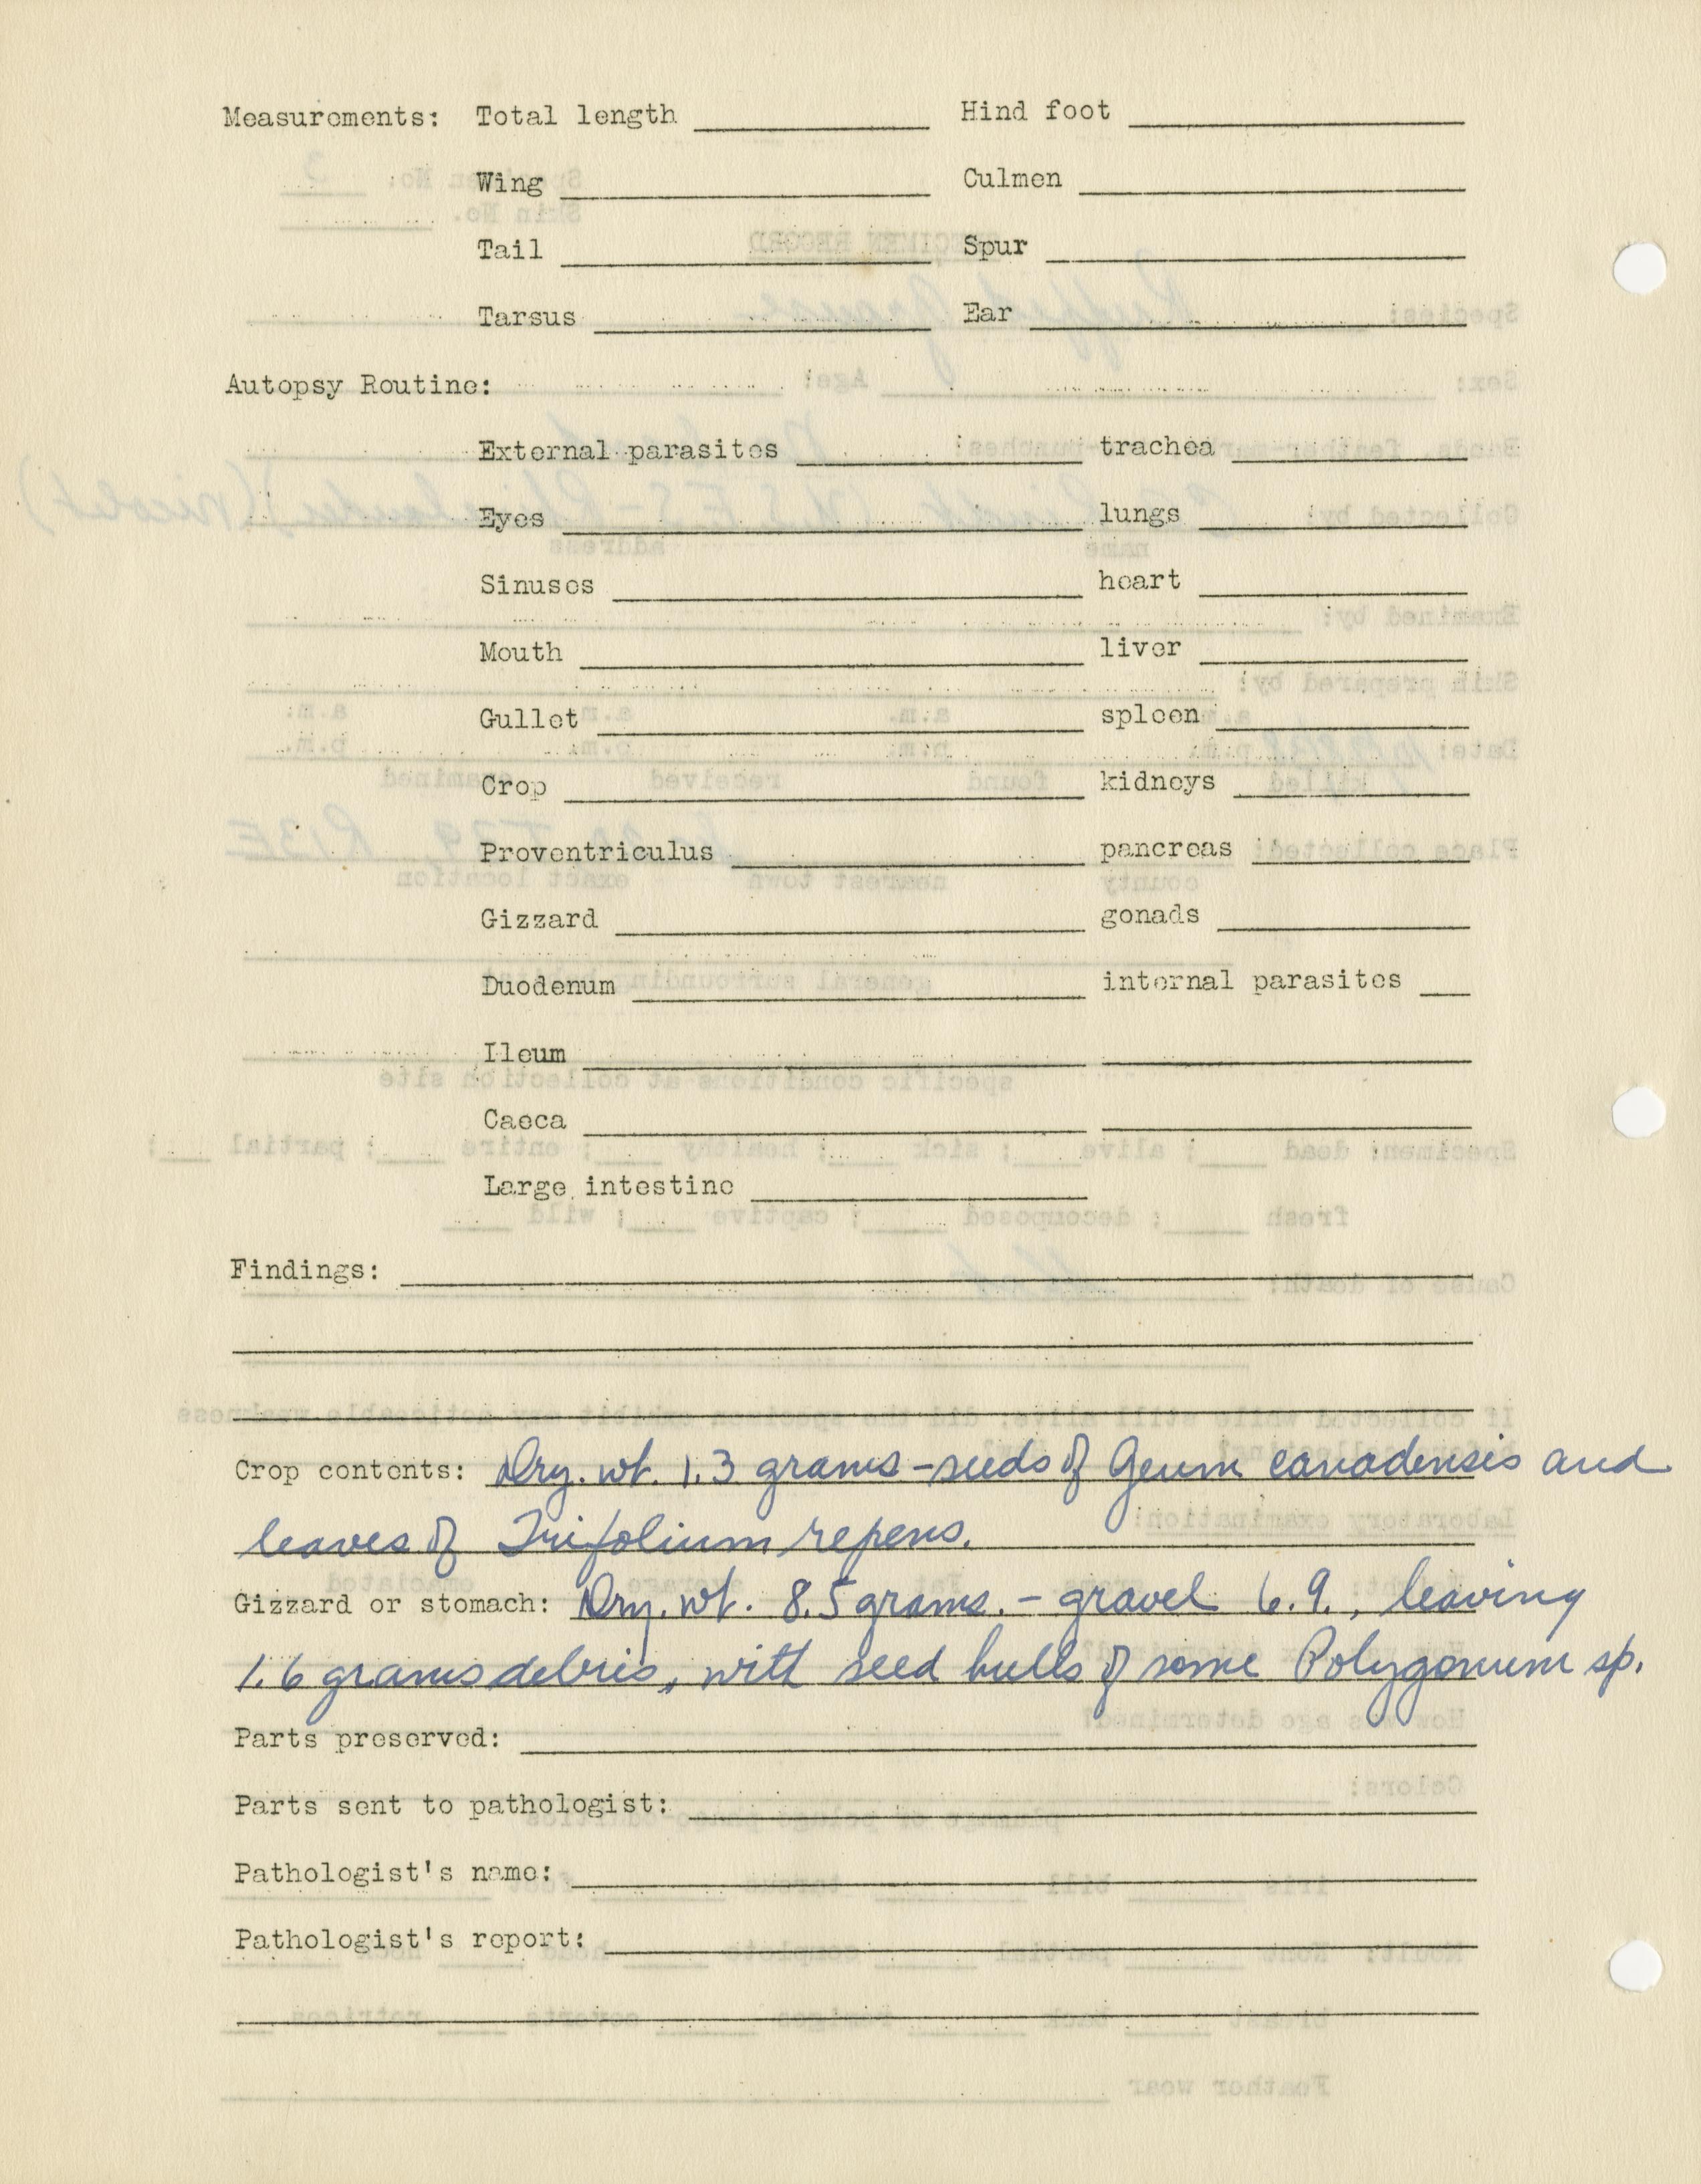 Measurements: Total length Hind foot
Wing Culmen
Tail Spur
Tarsus Ear
Autopsy Routine:
External parasites trachea
Eyes lungs
Sinuses heart
Mouth liver
Gullet spleen
Crop kidneys
Proventriculus pancreas
Gizzard gonads
Duodenum internal parasites
Ileum
Caeca
Large intestine
Findings:
Crop contents: Dry. wt. 1.3 grams - seeds of Geum canadensis and
leaves of Trifolium repens.
Gizzard or stomach: Dry. wt. 8.5 grams. - gravel 6.9., leaving
1.6 grams debris, with seed hulls of some Polygonum sp.
Parts preserved:
Parts sent to pathologist:
Pathologist's name:
Pathologist's report: